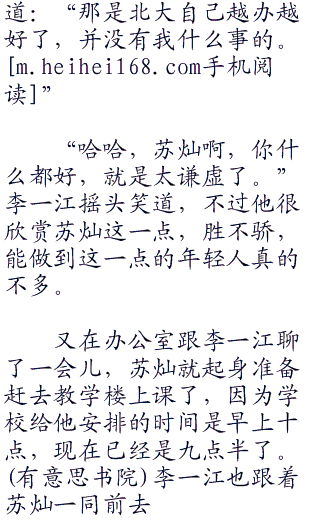 道：“那是北大自己越办越
好了，并没有我什么事的。
[m.heihei168.com手机阅
读]”
“哈哈，苏灿啊，你什
么都好，就是太谦虚了。”
李一江摇头笑道，不过他很
欣赏苏灿这一点，胜不骄，
能做到这一点的年轻人真的
不多。
又在办公室跟李一江聊
了一会儿，苏灿就起身准备
赶去教学楼上课了，因为学
校给他安排的时间是早上十
点，现在已经是九点半了。
(有意思书院)李一江也跟着
苏灿一同前去